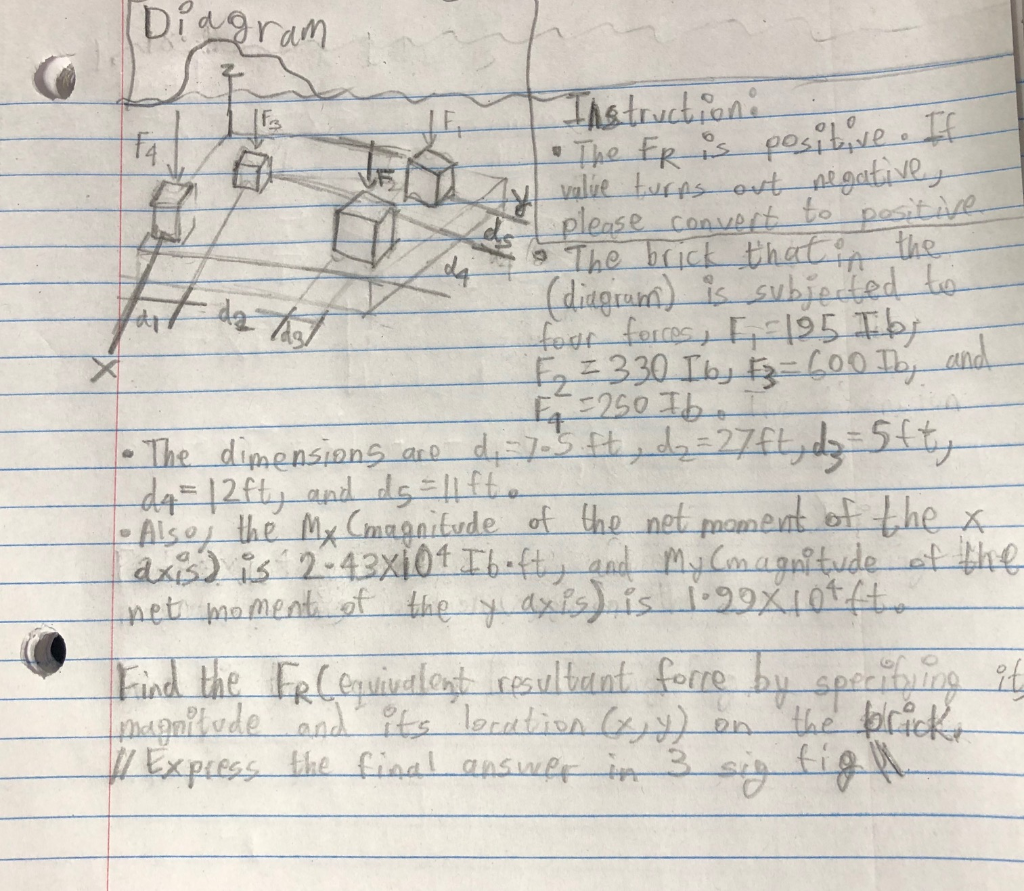 Diagram
z
F3
F1
F4
F2
y
d5
d4
d1
d2
d3
x
Instruction:
• The FR is positive. If
value turns out negative,
please convert to positive
• The brick that in the
(diagram) is subjected to
four forces, F1=195 Ib,
F2 = 330 Ib, F3=600 Ib, and
F4 =250 Ib.
• The dimensions are d1=7.5 ft, d2=27ft, d3=5ft,
d4=12ft, and d5=11ft.
• Also, the Mx (magnitude of the net moment of the x
axis) is 2.43x10⁴ Ib·ft, and My(magnitude of the
net moment of the y axis) is 1.99x10⁴ft.
Find the FR(equivalent resultant force by specifying its
magnitude and its location (x,y) on the brick.
// Express the final answer in 3 sig fig \\